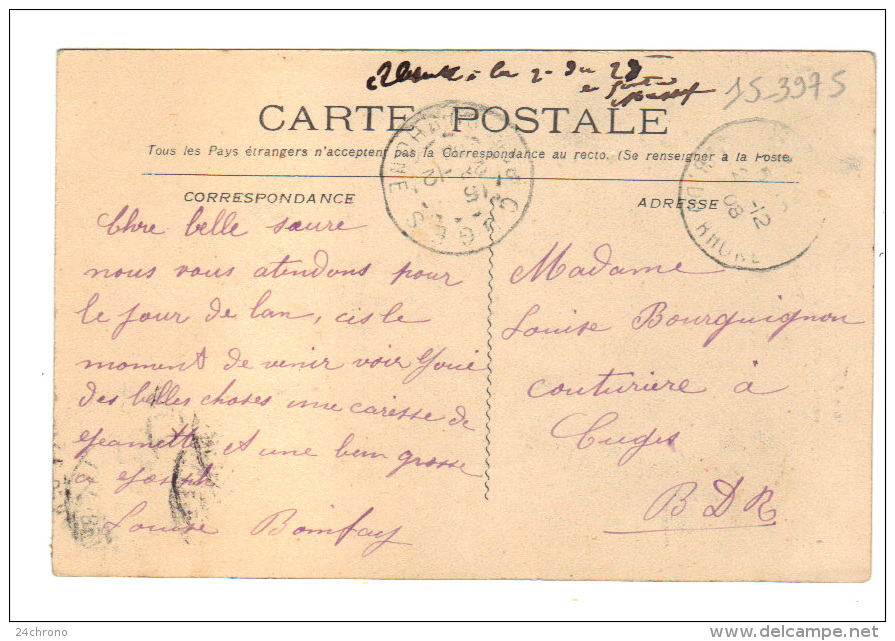 à la 2 du 28
153975
CARTE POSTALE
Tous les Pays étrangers n'acceptent pas la Correspondance au recto. (Se renseigner à la Poste
CORRESPONDANCE
Chre belle saure
nous vous atendons pour
le jour de lan, cis le
moment de venir voir
des belles choses une caresse de
Jeanette et une bien grosse
a Joseph
Louise Bonifay
ADRESSE
Madame
Louise Bourguignon
couturiere à
Cuges
BDR
CUGES
RHONE
-12
-12
08
DU RHONE
24chrono
www.delcampe.net